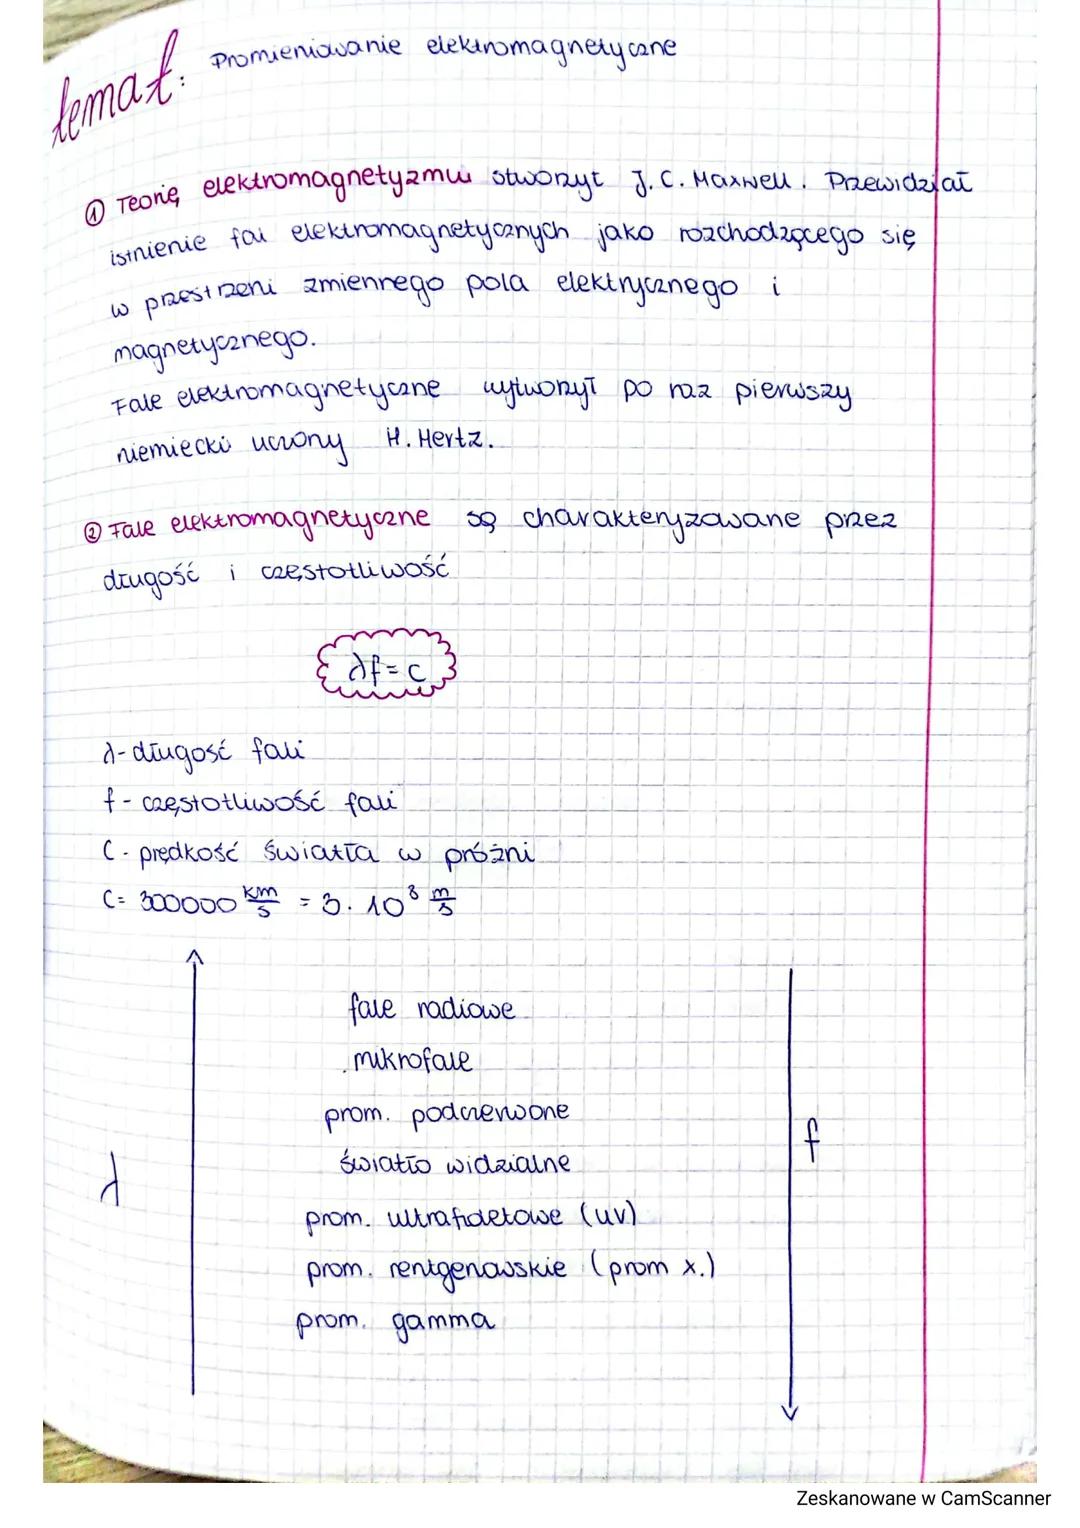 temat: Promieniowanie elektromagnetyczne
① Teorię elektromagnetyzmu stworzył J. C. Maxwell. Przewidział
istnienie fal elektromagnetycznych jako rozchodzącego się
w przestrzeni zmiennego pola elektrycznego i
magnetycznego.
Fale elektromagnetyczne wytworzył po raz pierwszy
niemiecki uczony H. Hertz.
② Fale elektromagnetyczne są charakteryzowane przez
długość i częstotliwość
λf=c
λ-długość fali
f - częstotliwość fali
C - prędkość światła w próżni
C= 300000 km/s = 3. 10⁸ m/s
fale radiowe
mikrofale
prom. podczerwone
f
światło widzialne
λ
prom. ultrafioletowe (uv)
prom. rentgenowskie (prom x.)
prom. gamma
Zeskanowane w CamScanner